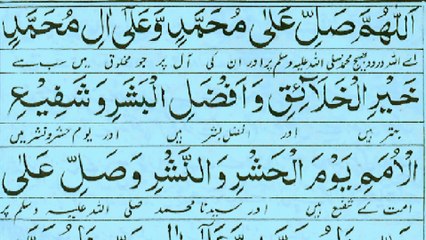 اَللّٰهُمَّ صَلِّ عَلٰى مُحَمَّدٍ وَّعَلٰٓى اٰلِ مُحَمَّدٍ
اے اللہ درود بھیج محمد صلی اللہ علیہ وسلم پر اور ان کی آل پر جو مخلوق میں سب سے
خَيْرِ الْخَلَآئِقِ وَاَفْضَلِ الْبَشَرِ وَشَفِيْعِ
بہتر ہیں اور افضل بشر ہیں اور یوم حشر و نشر میں
الْاُمَمِ يَوْمَ الْحَشْرِ وَالنَّشْرِ وَصَلِّ عَلٰى
امت کے شفیع ہیں اور سیدنا محمد صلی اللہ علیہ وسلم پر